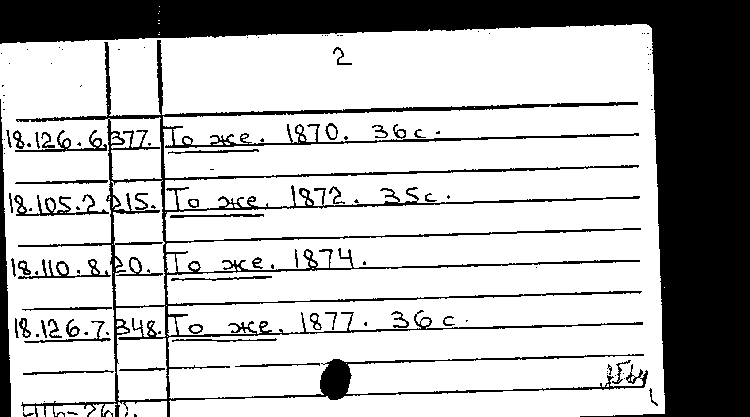 2
18.126.6.377. То же. 1870. 36 с.
18.105.2.215. То же. 1872. 35 с.
18.110.8.20. То же. 1874.
18.126.7.348. То же. 1877. 36 с.